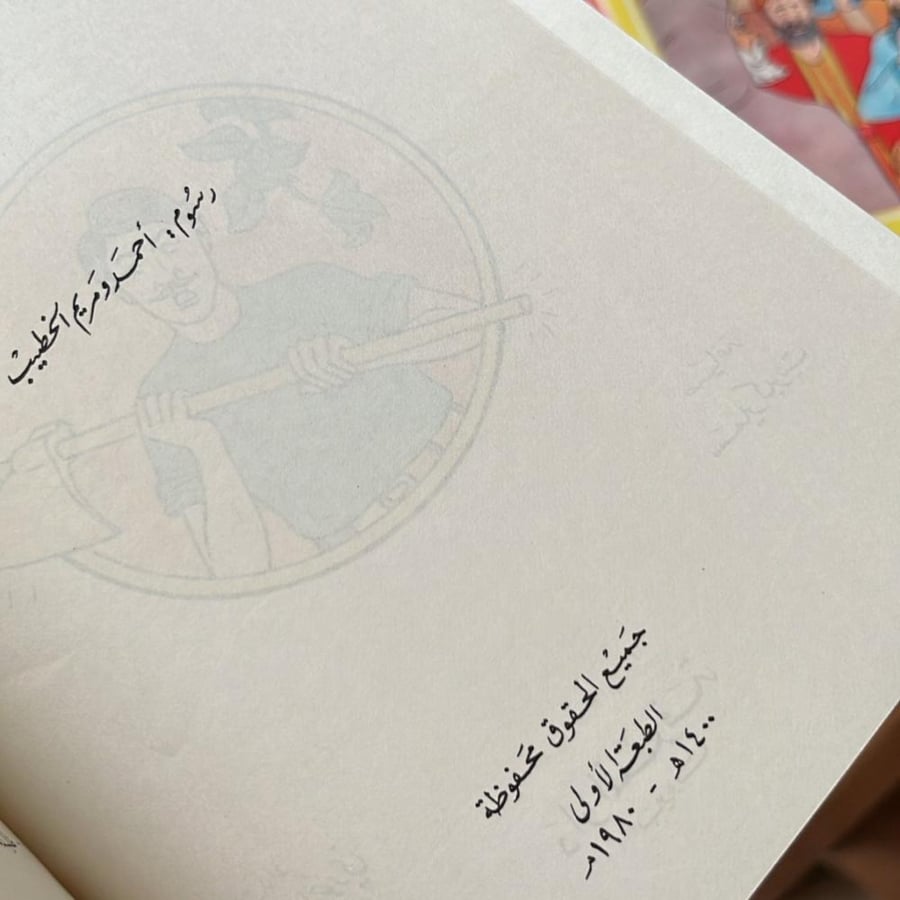 رسُوم: أحمَد وَمَريم الخطيبْ
جَميْع الحقوق محَفوظة
الطبعَة الأولى
١٤٠٠هـ - ١٩٨٠مـ